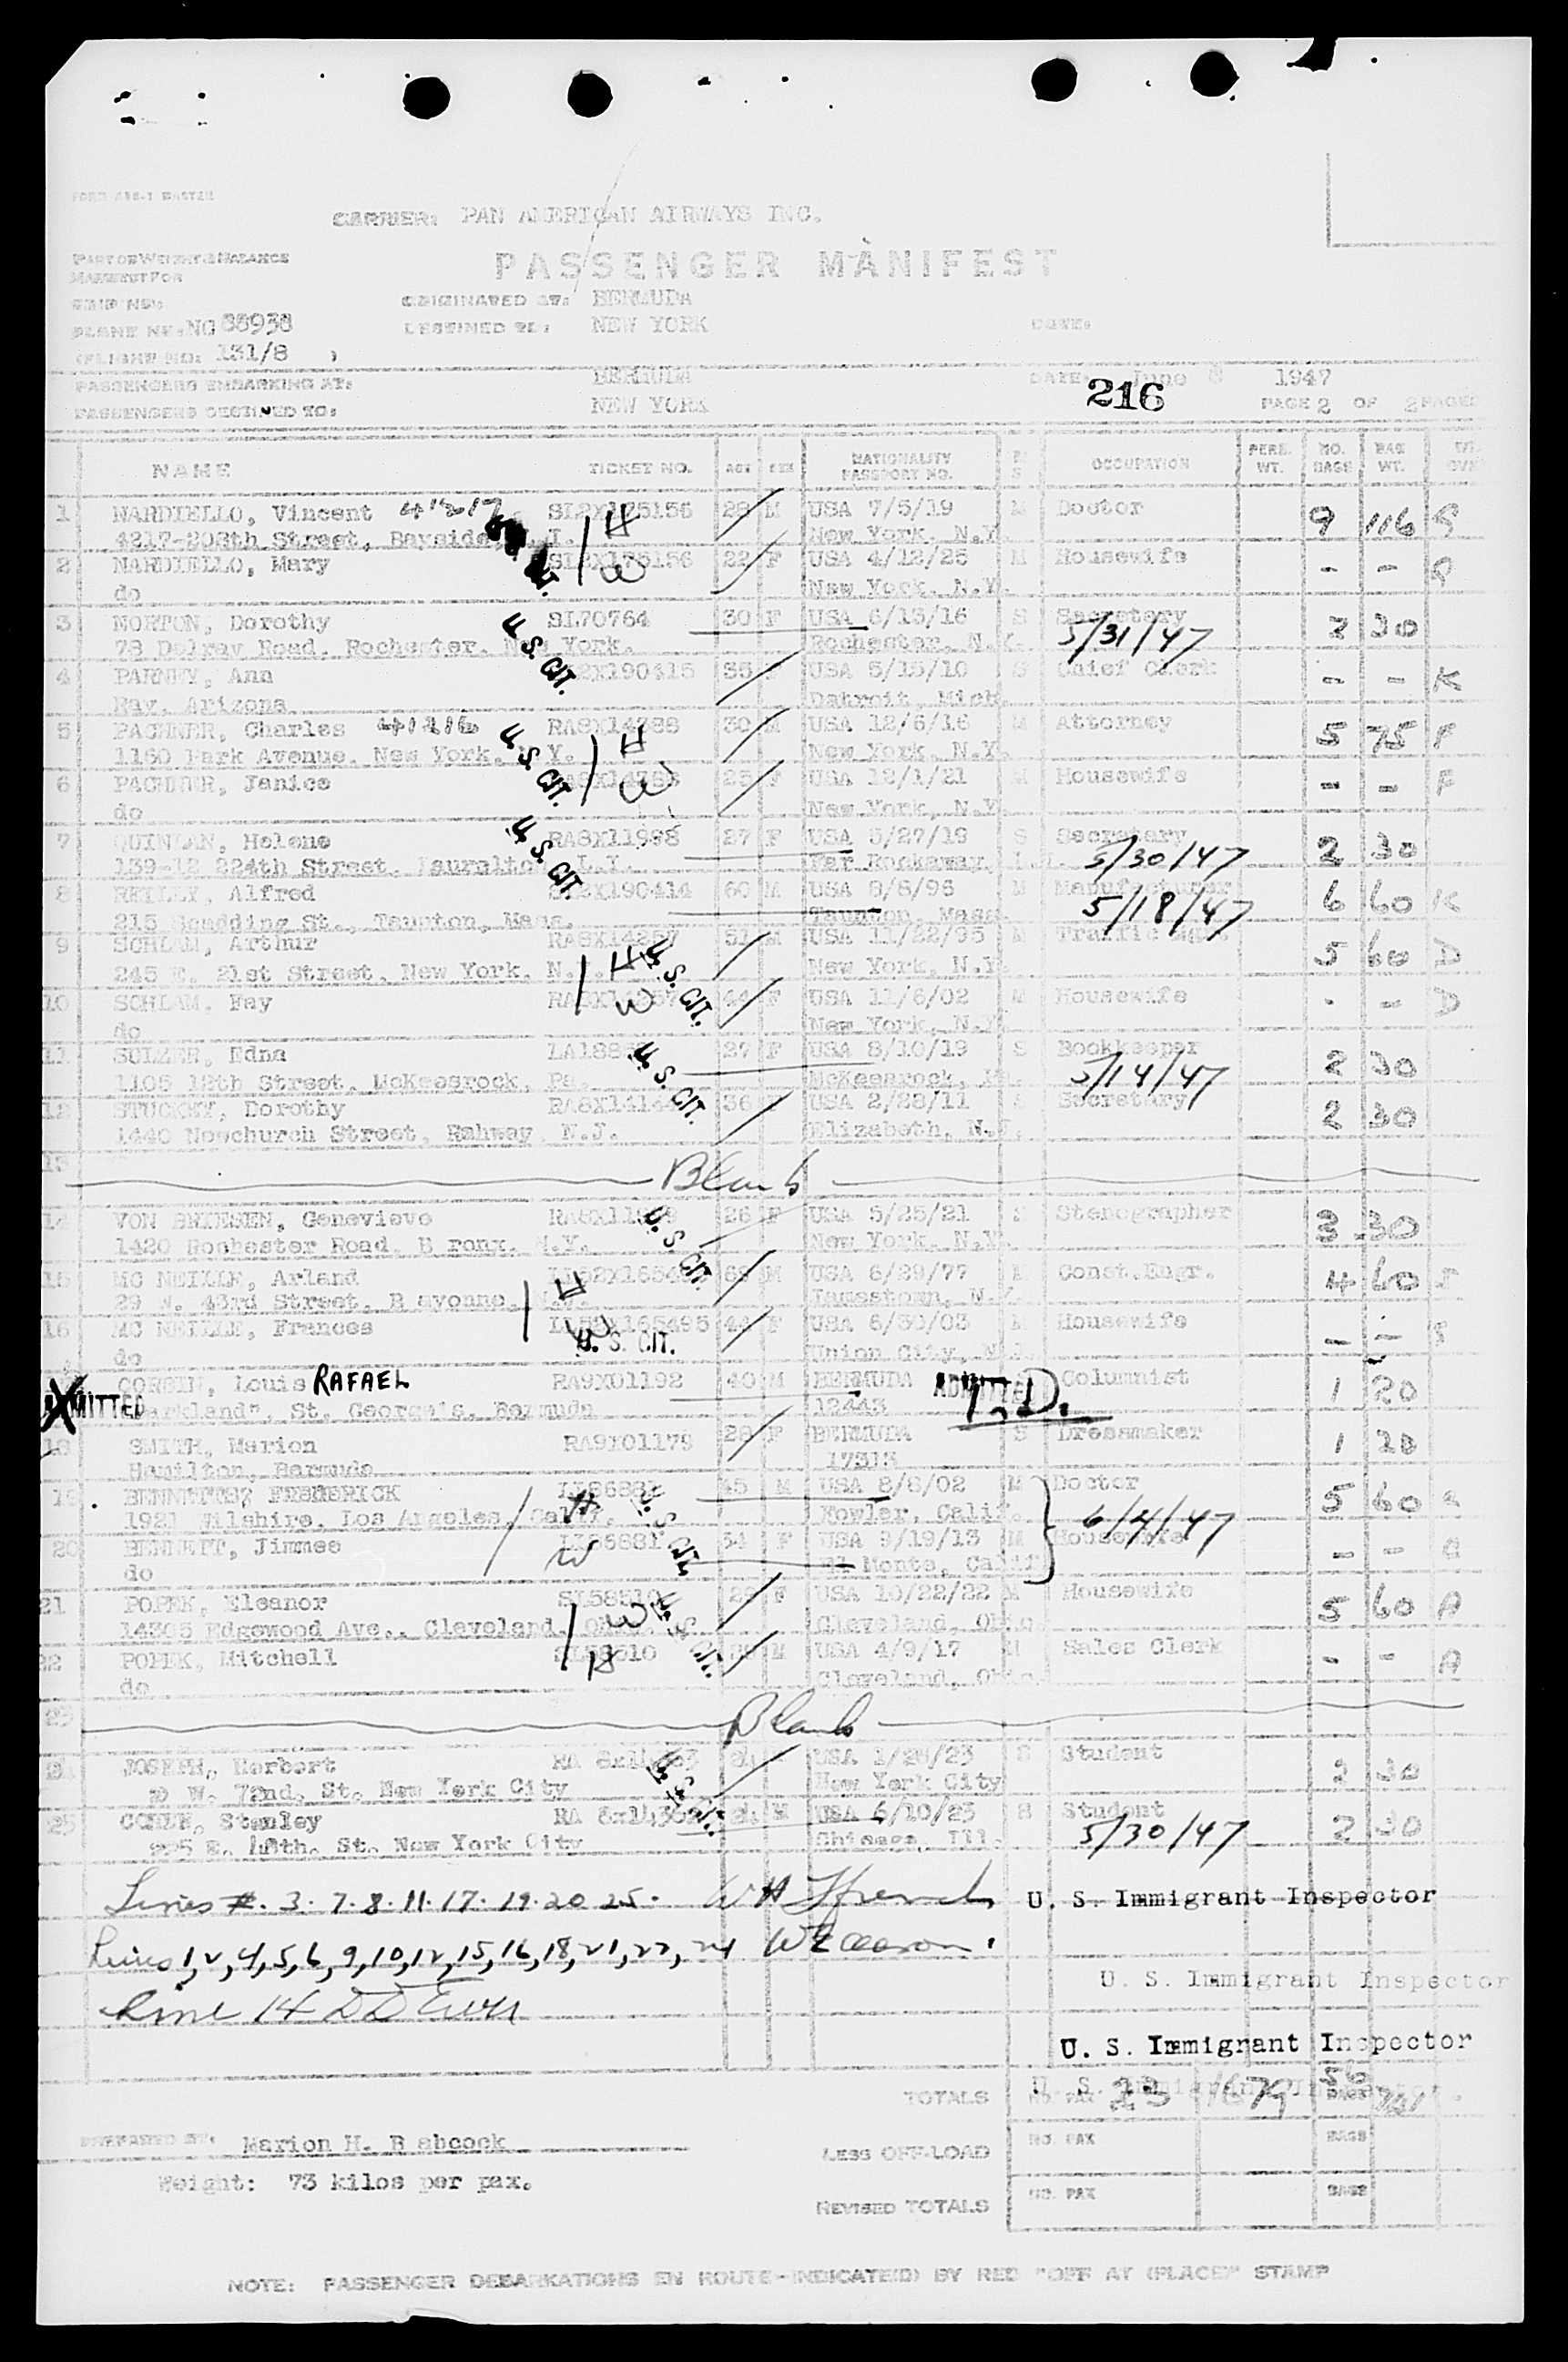 CARRIER: PAN AMERICAN AIRWAYS INC.
PASSENGER MANIFEST
PART OF WEIGHT & BALANCE
MANIFEST FOR
SHIP NO:
ORIGINATED AT: BERMUDA
PLANE NO: NC 88938
DESTINED TO: NEW YORK
DATE:
FLIGHT NO: 131/8
PASSENGERS EMBARKING AT: BERMUDA DATE: June 8 1947
216
PASSENGERS DESTINED TO: NEW YORK PAGE 2 OF 2 PAGES
NAME TICKET NO. AGE SEX NATIONALITY PASSPORT NO. OCCUPATION PERS. WT. NO. BAGS BAG WT.
1 NARDIELLO, Vincent 28 M USA 7/5/19 M Doctor 9 116
4217-208th Street, Bayside, New York, N.Y.
H
2 NARDIELLO, Mary 22 F USA 4/12/25 M Housewife - -
do New York, N.Y.
W
3 NORTON, Dorothy SL70764 30 F USA 6/15/16 S Secretary 2 30
78 Delray Road, Rochester, New York. Rochester, N.Y. 5/31/47
U.S. CIT.
4 Ann 35 F USA 5/15/10 S Chief Clerk - - K
Ray, Arizona Detroit, Mich
5 PACHNER, Charles 30 M USA 12/6/16 M Attorney 5 75 F
1160 Park Avenue, New York, N.Y. New York, N.Y.
U.S. CIT. H
6 PACHNER, Janice 25 F USA 12/1/21 M Housewife - - F
do New York, N.Y.
W
7 QUINLAN, Helene RA8X11998 27 F USA 5/27/19 S Secretary 2 30
139-12 224th Street, Laurelton, L.I. Far Rockaway, L.I. 5/30/47
U.S. CIT.
8 REILLY, Alfred SL2X190414 60 M USA 8/8/96 M Manufacturer 6 60 K
215 Taunton, Mass. Taunton, Mass. 5/18/47
9 SCHLAM, Arthur 51 M USA 11/22/95 M Traffic Mgr. 5 60 D
245 E. 21st Street, New York, N.Y. New York, N.Y.
H U.S. CIT.
10 SCHLAM, Fay 44 F USA 11/6/02 M Housewife - - D
do New York, N.Y.
W
11 Edna 27 F USA 8/10/19 S Bookkeeper 2 30
1105 12th Street, McKeesrock, Pa. McKeesrock, Pa. 5/14/47
U.S. CIT.
12 Dorothy 36 F USA 2/28/11 Secretary 2 30
1440 Newchurch Street, Rahway, N.J. Elizabeth, N.J.
13 Blank
14 VON BRIESEN, Genevieve 26 F USA 5/25/21 S Stenographer 3 30
1420 Rochester Road, B ronx, N.Y. New York, N.Y.
U.S. CIT.
15 MC NEILLE, Arland 69 M USA 6/29/77 M Const.Engr. 4 60 S
29 W. 43rd Street, B ayonne, N.J. Jamestown, N.Y.
H
16 MC NEILLE, Frances 44 F USA 6/30/03 M Housewife - - S
do Union City, N.J.
W U.S. CIT.
Louis RAFAEL RA9X01192 40 M BERMUDA Columnist 1 20
ADMITTED "Parkland", St. George's, Bermuda 12443 ADMITTED T.D.
18 SMITH, Marion RA9X01179 28 F BERMUDA S Dressmaker 1 20
Hamilton, Bermuda 17313
19 BENNETT, FREDERICK 45 M USA 8/8/02 M Doctor 5 60
1921 Wilshire, Los Angeles, Calif. Fowler, Calif. 6/4/47
H U.S. CIT.
20 BENNETT, Jimmee 34 F USA 9/19/13 M Housewife - -
do El Monte, Calif
W
21 POPEK, Eleanor SL58510 F USA 10/22/22 M Housewife 5 60 A
14305 Edgewood Ave., Cleveland, Ohio Cleveland, Ohio
W U.S. CIT.
22 POPEK, Mitchell SL58510 M USA 4/9/17 M Sales Clerk - - A
do Cleveland, Ohio
H
23 Blank
24 JOSEPH, Herbert USA 1/24/23 S Student 2 30
W. 72nd. St. New York City New York City
U.S. CIT.
25 Stanley M USA 6/10/23 S Student 2 30
225 E. St. New York City Chicago, Ill. 5/30/47
Lines #. 3. 7. 8. 11. 17. 19. 20 25. U. S. Immigrant Inspector
Lines 1, 2, 4, 5, 6, 9, 10, 12, 15, 16, 18, 21, 22, 24
U. S. Immigrant Inspector
Line 14
U. S. Immigrant Inspector
TOTALS NO. PAX 23 1679 BAGS 56
PREPARED BY: Marion H. B abcock LESS OFF-LOAD NO. PAX BAGS
Weight: 73 kilos per pax.
REVISED TOTALS NO. PAX BAGS
NOTE: PASSENGER DEBARKATIONS EN ROUTE-INDICATE(D) BY RED "OFF AT (PLACE)" STAMP